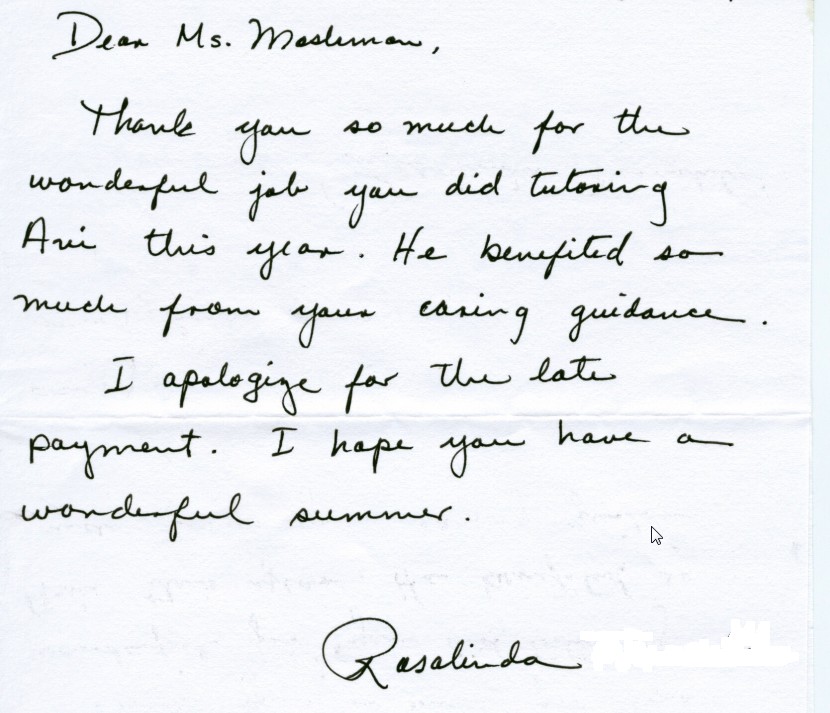 Dear Ms.
Thank you so much for the
wonderful job you did tutoring
Avi this year. He benefited so
much from your caring guidance.
I apologize for the late
payment. I hope you have a
wonderful summer.
Rosalinda